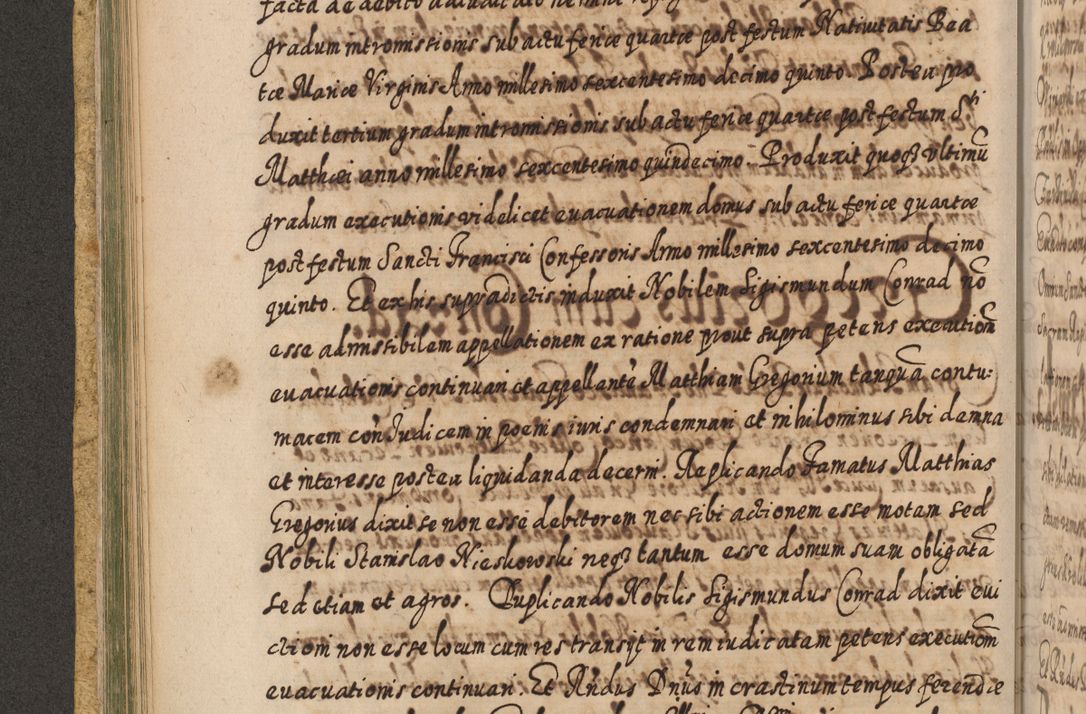 facta de debito
gradum intromissionis sub actu feriæ quartæ post festum Natiuitatis Bea
tæ Mariæ Virginis Anno millesimo sexcentesimo decimo quinto. Postea pro
duxit tertium gradum intromissionis sub actu feriæ quartæ post festum Sti
Matthæi anno millesimo sexcentesimo quindecimo. Produxit quoq3 vltimũ
gradum executionis videlicet euacuationem domus sub actu feriæ quartæ
post festum Sancti Francisci Confessoris Anno millesimo sexcentesimo decimo
quinto. Et ex his supradictis induxit Nobilem Sigismundum Conrad nõ
esse admissibilem appellationem ex ratione prout supra petens executiom̃
euacuationis continuari et appellantẽ Matthiam Gregorium tanquã contu:
macem con Judicem in poenis iuris condemnari et nihilominus sibi damna
et interesse postea liquidanda decerni. Replicando Famatus Matthias
Gregorius dixit se non esse debitorem nec sibi actionem esse motam sed
Nobili Stanislao Nieskowski neq3 tantum esse domum suam obligatã
sed etiam et agros. Duplicando Nobilis Sigismundus Conrad dixit eui
ctiom̃ non esse locum cum res transijt in rem iudicatam petens executiom̃
euacuationis continuari. Et Rñdus Dñus in crastinum tempus ferendæ